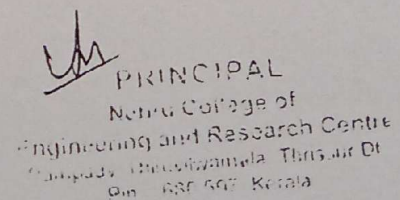 PRINCIPAL
Nehru College of
Engineering and Research Centre
Pampady, Thiruvilwamala, Thrissur Dt
Pin Kerala